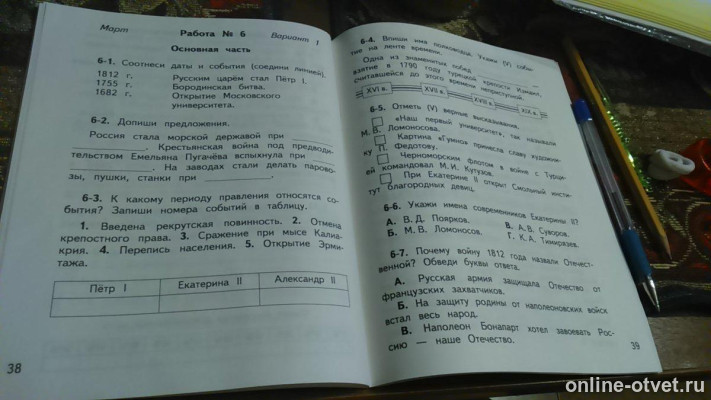 Март Работа № 6 Вариант 1
Основная часть
6-1. Соотнеси даты и события (соедини линией).
1812 г. Русским царём стал Пётр I.
1755 г. Бородинская битва.
1682 г. Открытие Московского
университета.
6-2. Допиши предложения.
Россия стала морской державой при
. Крестьянская война под предводи-
тельством Емельяна Пугачёва вспыхнула при
. На заводах стали делать парово-
зы, пушки, станки при .
6-3. К какому периоду правления относятся со-
бытия? Запиши номера событий в таблицу.
1. Введена рекрутская повинность. 2. Отмена
крепостного права. 3. Сражение при мысе Калиа-
крия. 4. Перепись населения. 5. Открытие Эрми-
тажа.
Пётр I Екатерина II Александр II
38
6-4. Впиши имя полководца. Укажи (V) собы-
тие на ленте времени.
Одна из знаменитых побед
взятие в 1790 году турецкой крепости Измаил,
считавшейся до этого времени неприступной.
XVI в. XVII в. XVIII в. XIX в.
6-5. Отметь (V) верные высказывания.
«Наш первый университет», так называли
М. В. Ломоносова.
Картина «Гумно» принесла славу художни-
ку П. Федотову.
Черноморским флотом в войне с Турци-
ей командовал М. И. Кутузов.
При Екатерине II открыт Смольный инсти-
тут благородных девиц.
6-6. Укажи имена современников Екатерины II?
А. В. Д. Поярков. В. А. В. Суворов.
Б. М. В. Ломоносов. Г. К. А. Тимирязев.
6-7. Почему войну 1812 года назвали Отечест-
венной? Обведи буквы ответа.
А. Русская армия защищала Отечество от
французских захватчиков.
Б. На защиту родины от наполеоновских войск
встал весь народ.
В. Наполеон Бонапарт хотел завоевать Рос-
сию — наше Отечество.
39
online-otvet.ru